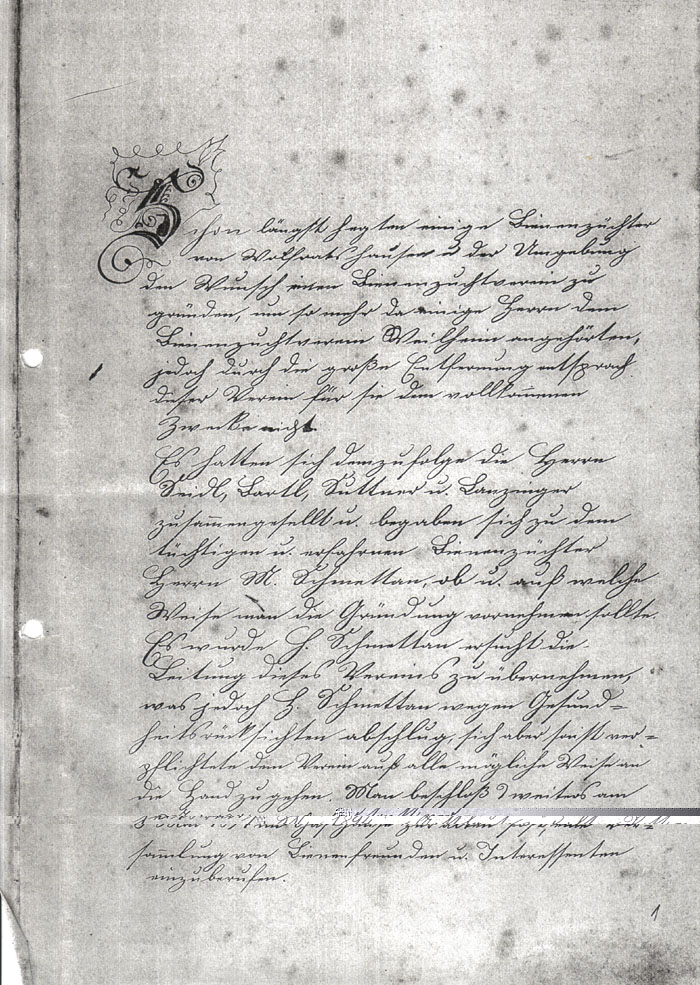 Schon längst hegten einige Bienenzüchter
von Wolfratshausen u. der Umgebung
den Wunsch einen Bienenzuchtverein zu
gründen, um so mehr da einige Herrn dem
Bienenzuchtverein Weilheim angehörten,
jedoch durch die große Entfernung entsprach
dieser Verein für sie dem vollkommenen
Zwecke nicht.
Es hatten sich demzufolge die Herrn
Seidl, Bartl, Suttner u. Lanzinger
zusammengesellt u. begaben sich zu dem
tüchtigen u. erfahrnen Bienenzüchter
Herrn M. Schmettan, ob u. auf welche
Weise man die Gründung vornehmen sollte.
Es wurde H. Schmettan ersucht die
Leitung dieses Vereins zu übernehmen,
was jedoch H. Schmettan wegen Gesund=
heitsrücksichten abschlug, sich aber sonst ver=
pflichtete dem Verein auf alle mögliche Weise an
die Hand zu gehen. Man beschloß weiters am
sammlung von Bienenfreunden u. Interessenten
einzuberufen.
1